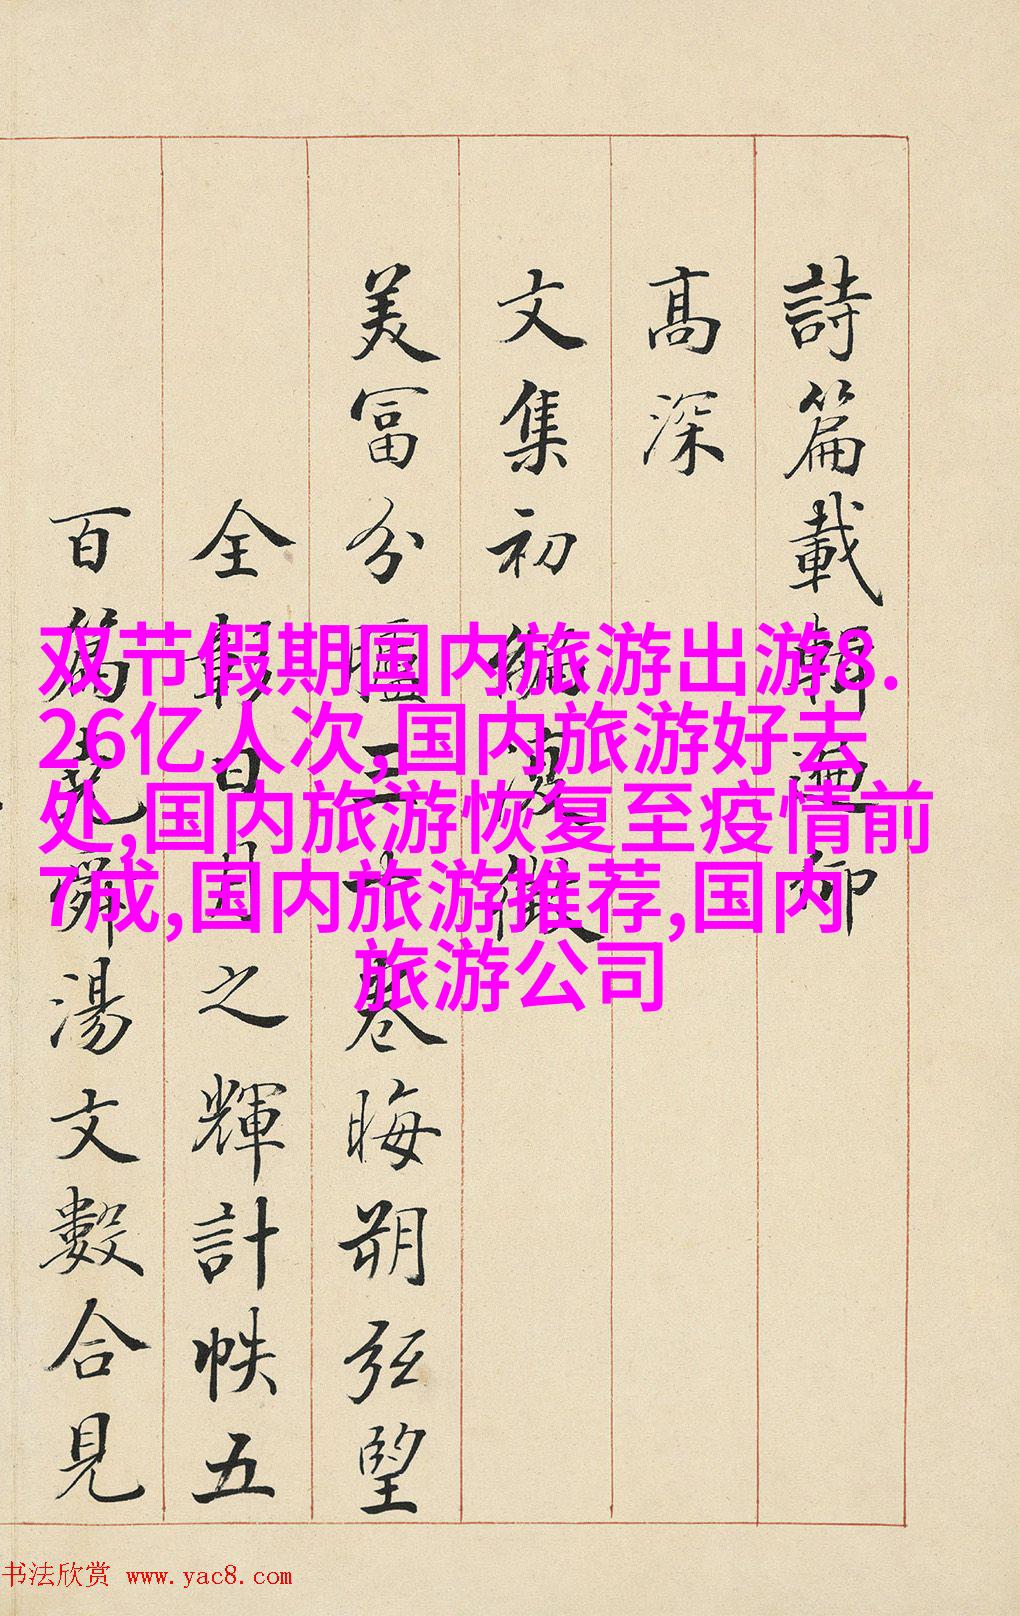 詩篇載
高深
文集初編
美富分臚 卷晦朔弦望
全 日月之輝計帙五
百篇堯舜湯文數合見
双节假期国内旅游出游8.
26亿人次,国内旅游好去
处,国内旅游恢复至疫情前
7成,国内旅游推荐,国内
旅游公司
书法欣赏 www.yac8.com